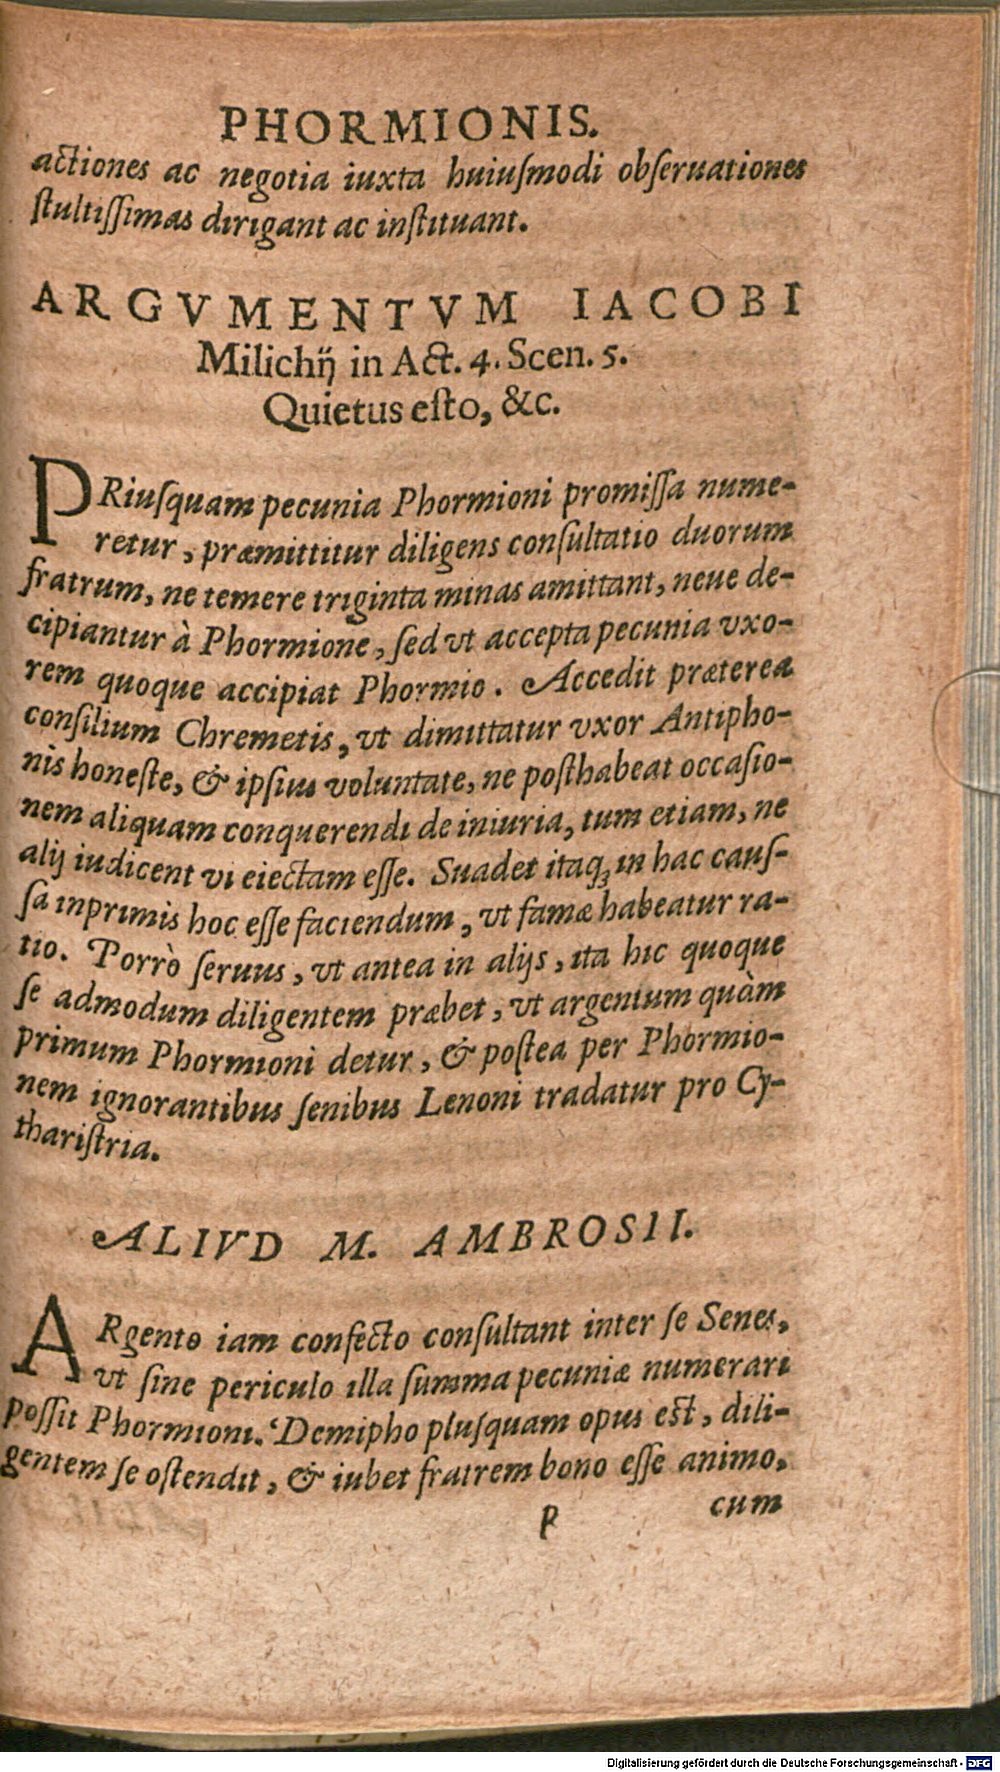 PHORMIONIS.
actiones ac negotia iuxta huiuſmodi obſeruationes
ſtultiſſimas dirigant ac inſtituant.
ARGVMENTVM IACOBI
Milichij in Act. 4. Scen. 5.
Quietus eſto, &c.
PRiuſquam pecunia Phormioni promiſſa nume-
retur, præmittitur diligens conſultatio duorum
fratrum, ne temere triginta minas amittant, neue de-
cipiantur à Phormione, ſed vt accepta pecunia vxo-
rem quoque accipiat Phormio. Accedit præterea
conſilium Chremetis, vt dimittatur vxor Antipho-
nis honeſte, & ipſius voluntate, ne poſthabeat occaſio-
nem aliquam conquerendi de iniuria, tum etiam, ne
alij iudicent vi eiectam eſſe. Suadet itaq; in hac cauſ-
ſa inprimis hoc eſſe faciendum, vt famæ habeatur ra-
tio. Porrò ſeruus, vt antea in alijs, ita hic quoque
ſe admodum diligentem præbet, vt argentum quàm
primum Phormioni detur, & poſtea per Phormio-
nem ignorantibus ſenibus Lenoni tradatur pro Cy-
thariſtria.
ALIVD M. AMBROSII.
ARgento iam confecto conſultant inter ſe Senes,
vt ſine periculo illa ſumma pecuniæ numerari
poſſit Phormioni. Demipho pluſquam opus eſt, dili-
gentem ſe oſtendit, & iubet fratrem bono eſſe animo,
P cum
Digitalisierung gefördert durch die Deutsche Forschungsgemeinschaft - DFG